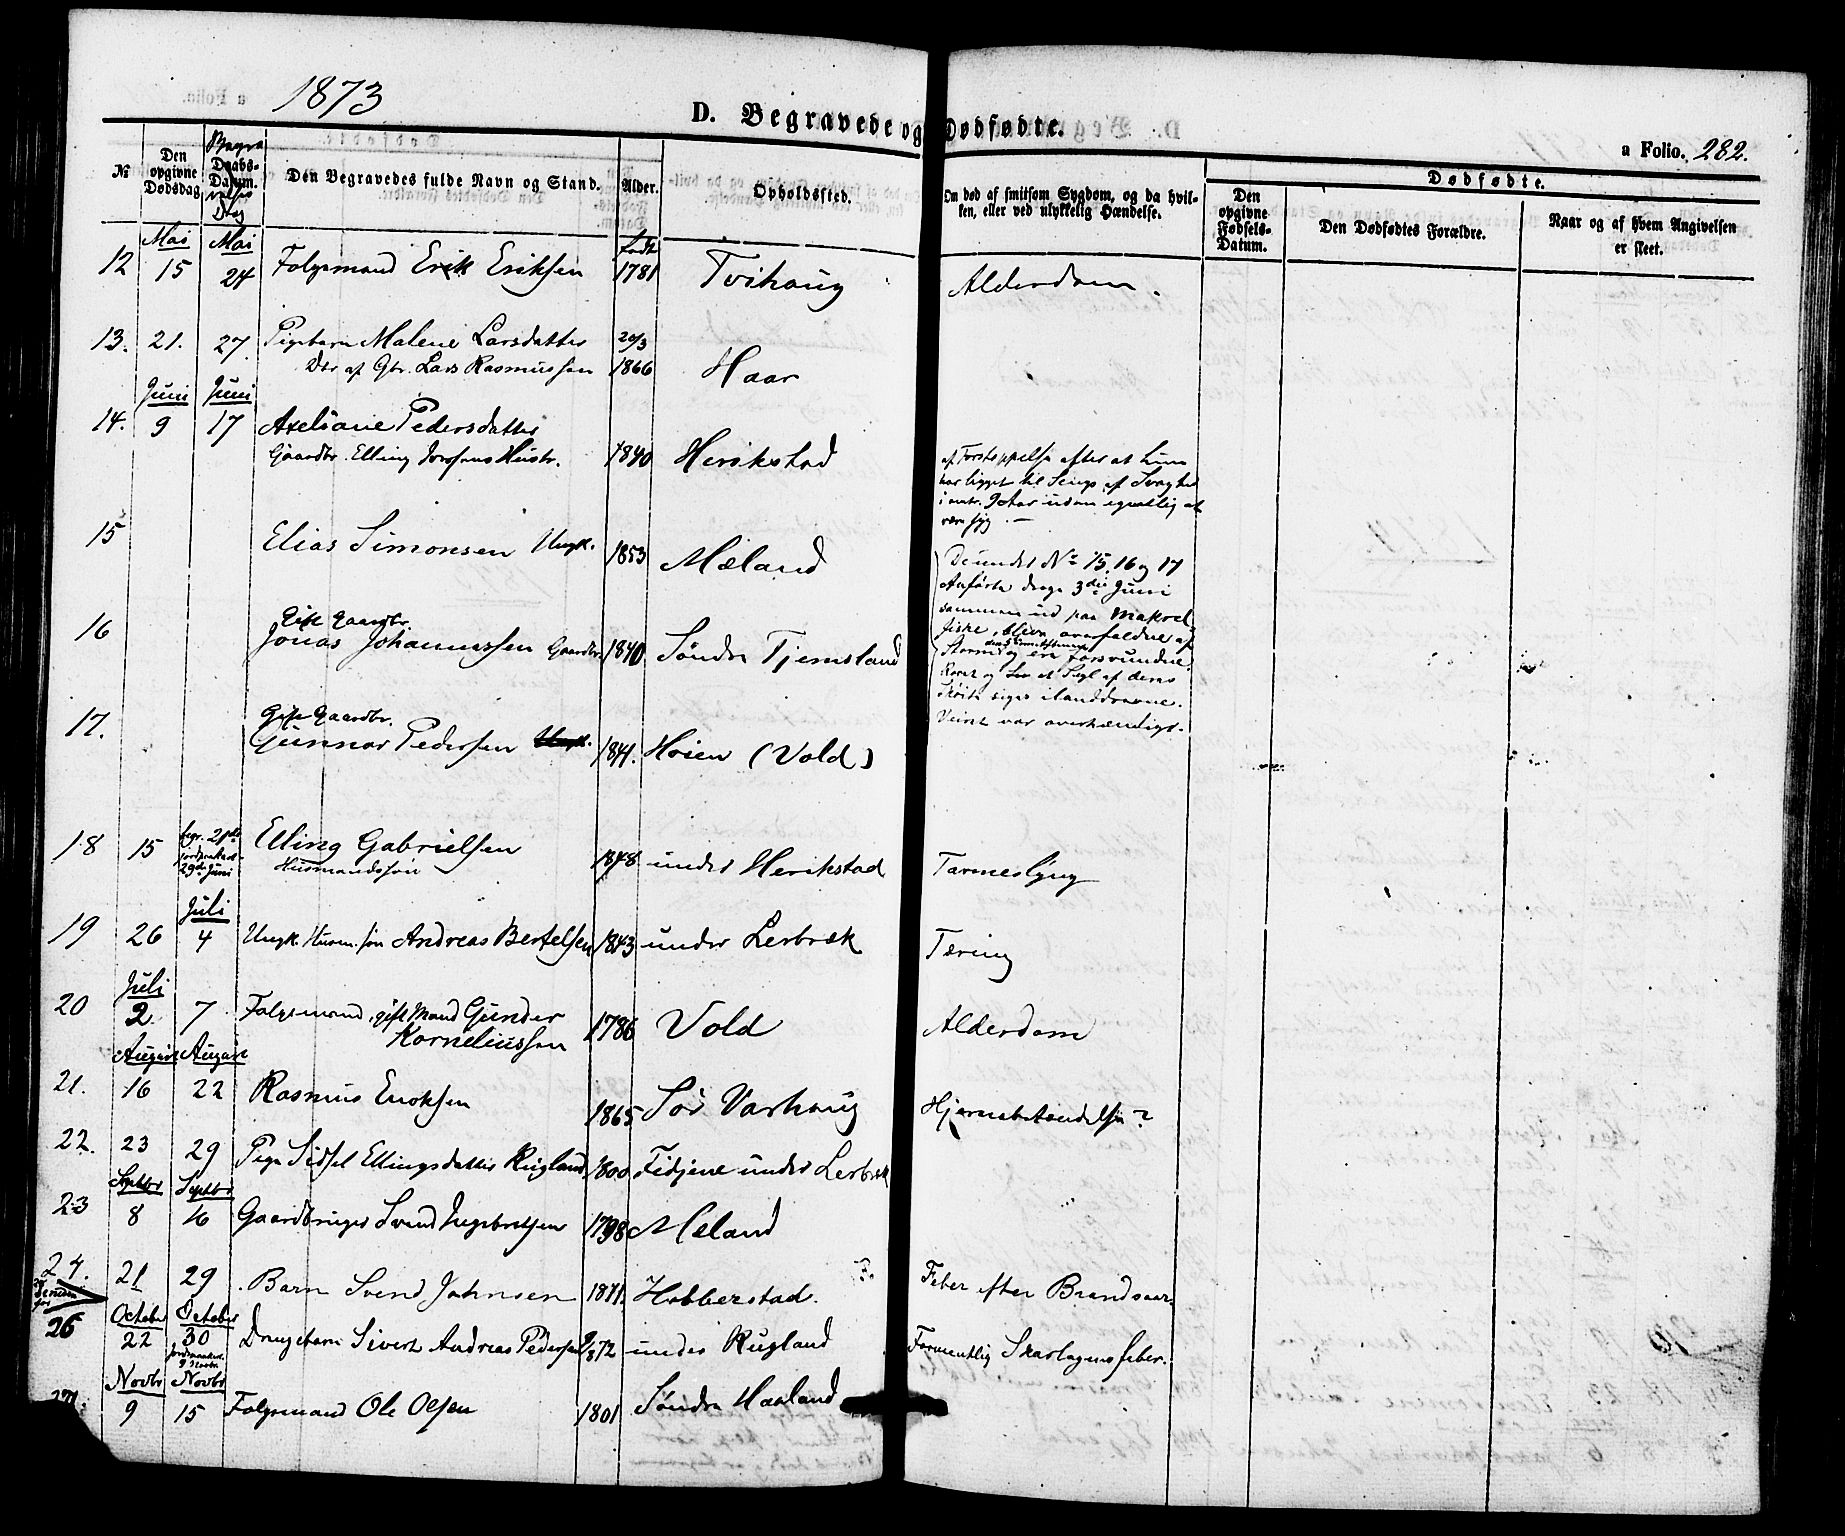 1873
D. Begravede og Dødfødte.
a Folio. 282.
№
Den opgivne Dødsdag
Daabs-Datum.
Den Begravedes fulde Navn og Stand.
Alder.
Opholdssted.
Om død af smitsom Sygdom, og da hvilken, eller ved ulykkelig Hændelse.
Dødfødte.
Den opgivne Fødsels-Datum.
Den Dødfødtes Forældre.
Naar og af hvem Angivelsen er skeet.
Mai Mai født
12 15 24 Folgemand Erik Eriksen 1781 Tvihaug Alderdom.
13. 21. 27. Pigebarn Malene Larsdatter 20/3
Dtr af Gbr. Lars Rasmussen 1866 Haar
Juni Juni
14. 9 17 Axeliane Pedersdatter
Gaardbr. Elling Hustr. 1840 Herikstad
af Forstoppelse efter at hun
har ligget til Sengs af Svaghed
i omtr. 9 Aar uden egentlig at
være syg. —
15 Elias Simonsen Ungk. 1853 Mæland
16 Gift Gaardbr.
Jonas Johannessen Gaardbr. 1840 Søndre Tjemsland
17. Gift Gaardbr.
Gunnar Pedersen Ungk. 1841. Høien (Vold)
De under No 15, 16 og 17
Anførte drog 3die Juni
sammen ud paa Makrel
fiske, bleve overfaldne af
Storm og ere forsvundne.
Roret og et Segl af deres
Skøite siges ilanddrevne.
Veiret var overhændigt.
18 15 begr. 21de
29de Juni Elling Gabrielsen
Husmandssøn 1848. under Herikstad Tarmeslyng
Juli
19 26 4 Ungk. Husm. søn Andreas Bertelsen 1843 under Lerbrek Tæring
Juli
20 2. 7 Folgemand, gift Mand Gunder
Korneliussen 1786 Vold Alderdom
August August
21. 16 22 Rasmus Enoksen 1865 Sør Varhaug Hjernebetændelse?
22. 23 29 Pige Sidsel Ellingsdatter Rugland 1800 Fidjene under Lerbrek
Septbr Septbr
23 8 16 Gaardbruger Svend Ingebretsen 1798 Mæland
24. 21 29 Barn Svend Johnsen 1871. Hobberstad. Feber efter Brandsaar.
October October
26 22 30 Drengebarn Sivert Andreas Pedersen 1872 under Rugland Formentlig Skarlagensfeber.
Novbr Novbr
9 15 Folgemand Ole Olsen 1801 Søndre Haaland